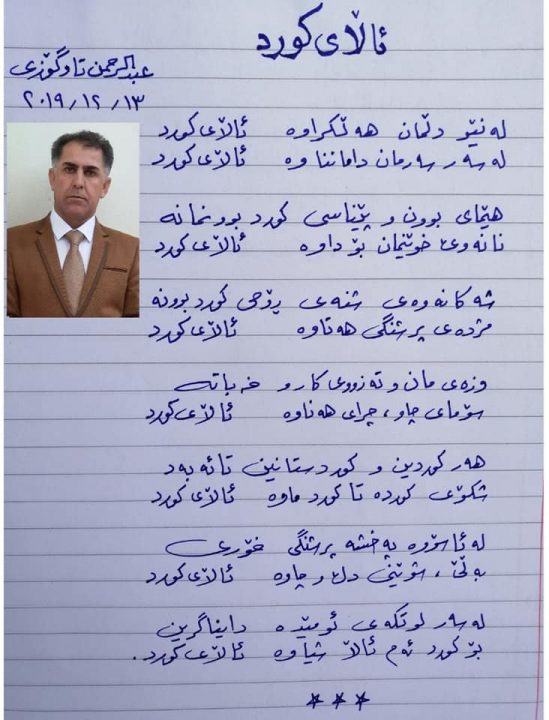 ئاڵای کورد
عبدالرحمن تاوگۆزی
٢٠١٩/١٢/١٣
لەنێو دڵمان هەڵکراوە ئاڵای کورد
لەسەر سەرمان دامانناوە ئاڵای کورد
هێمای بوون و پێناسی کورد بوونمانە
نانەوەی خوێنمان بۆ داوە ئاڵای کورد
شەکانەوەی شنەی ڕۆحی کورد بوونە
مژدەی پرشنگی هەتاوە ئاڵای کورد
وزەی مان و تەزووی کار و خەباتە
سۆمای چاو، چرای هەناوە ئاڵای کورد
هەر کوردین و کوردستانین تا ئەبەد
شکۆی کوردە تا کورد ماوە ئاڵای کورد
لە ئاسۆوە پەخشە پرشنگی خۆری
بەڵێ، شوێنی دڵ و چاوە ئاڵای کورد
لەسەر لوتکەی ئومێدە دایناگرین
بۆ کورد ئەم ئاڵا شیاوە ئاڵای کورد.
***